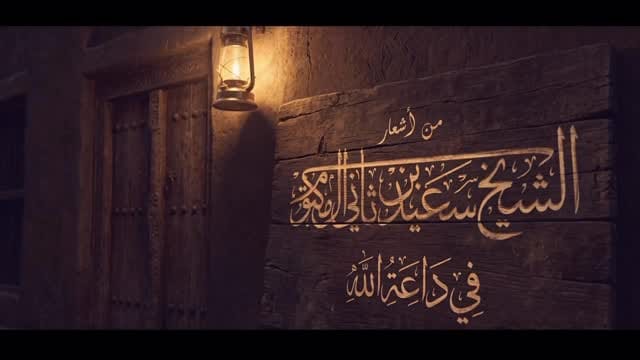 من أشعار
الشيخ سعيد بن ثاني المكتوم
فِي دَاعَةُ اللَّهِ